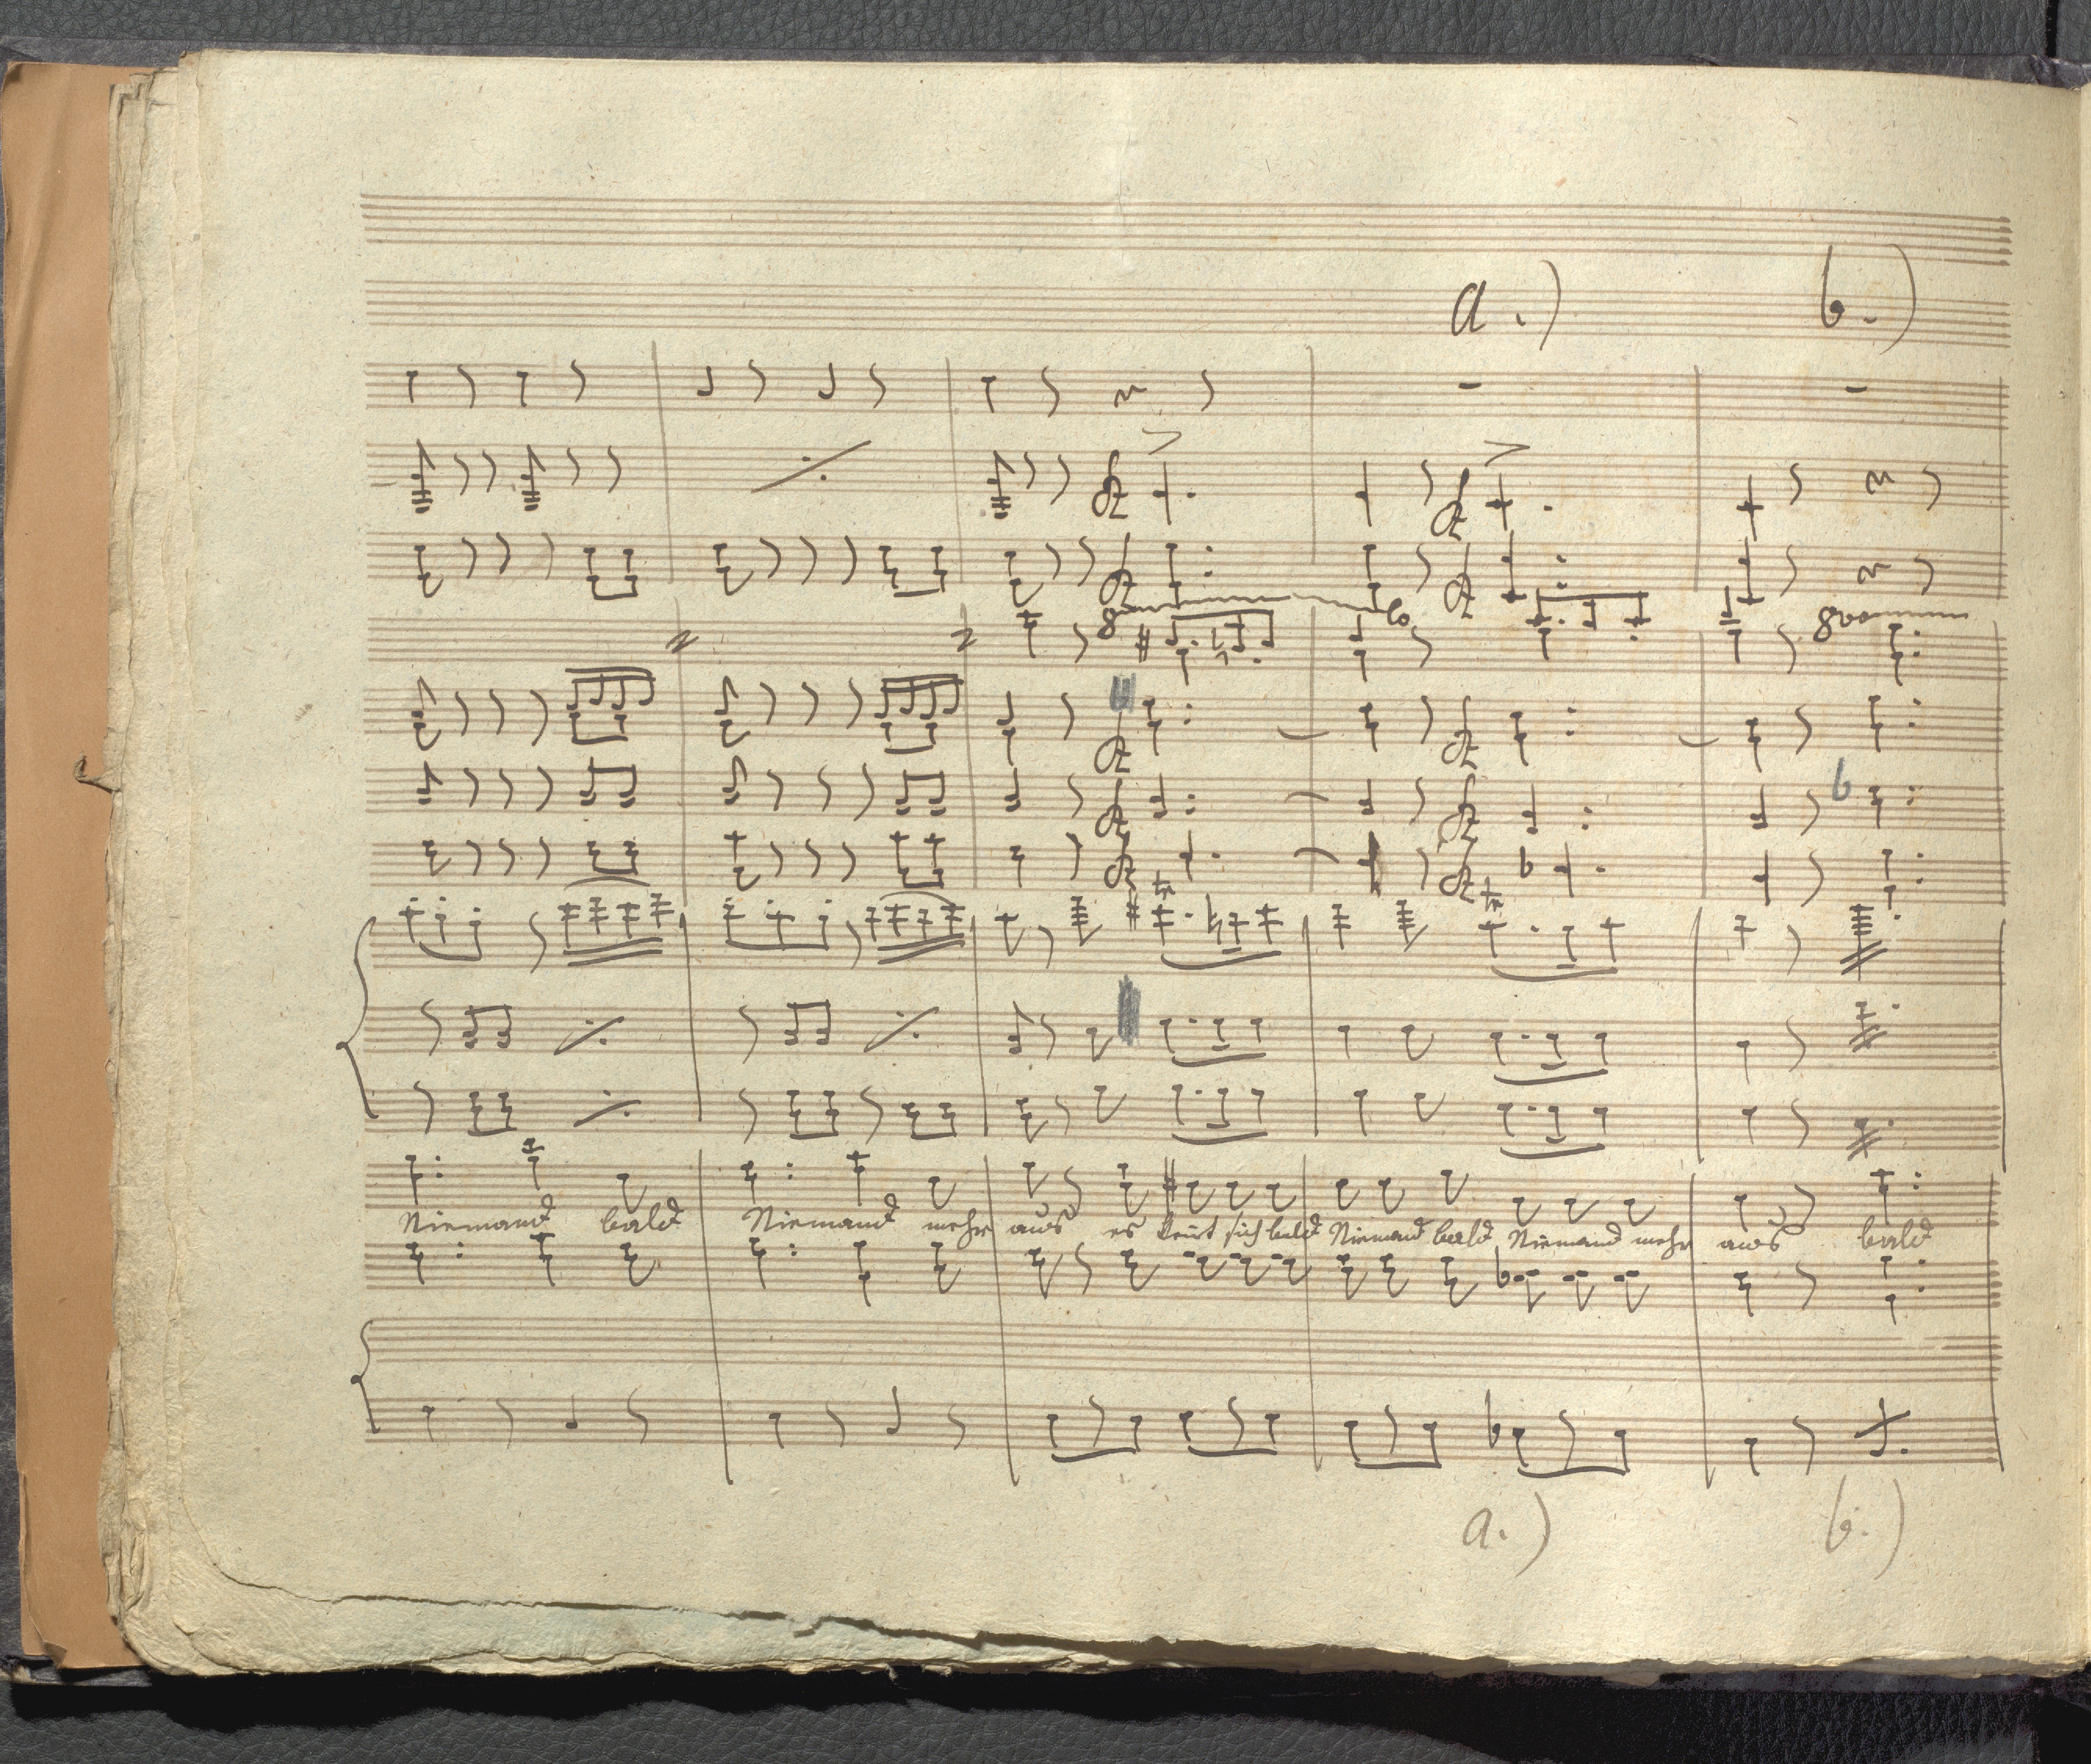 a.) b.)
8 lo
8va
tr tr
Niemand bald Niemand mehr aus es kennt sich bald Niemand bald Niemand mehr aus bald
a.) b.)